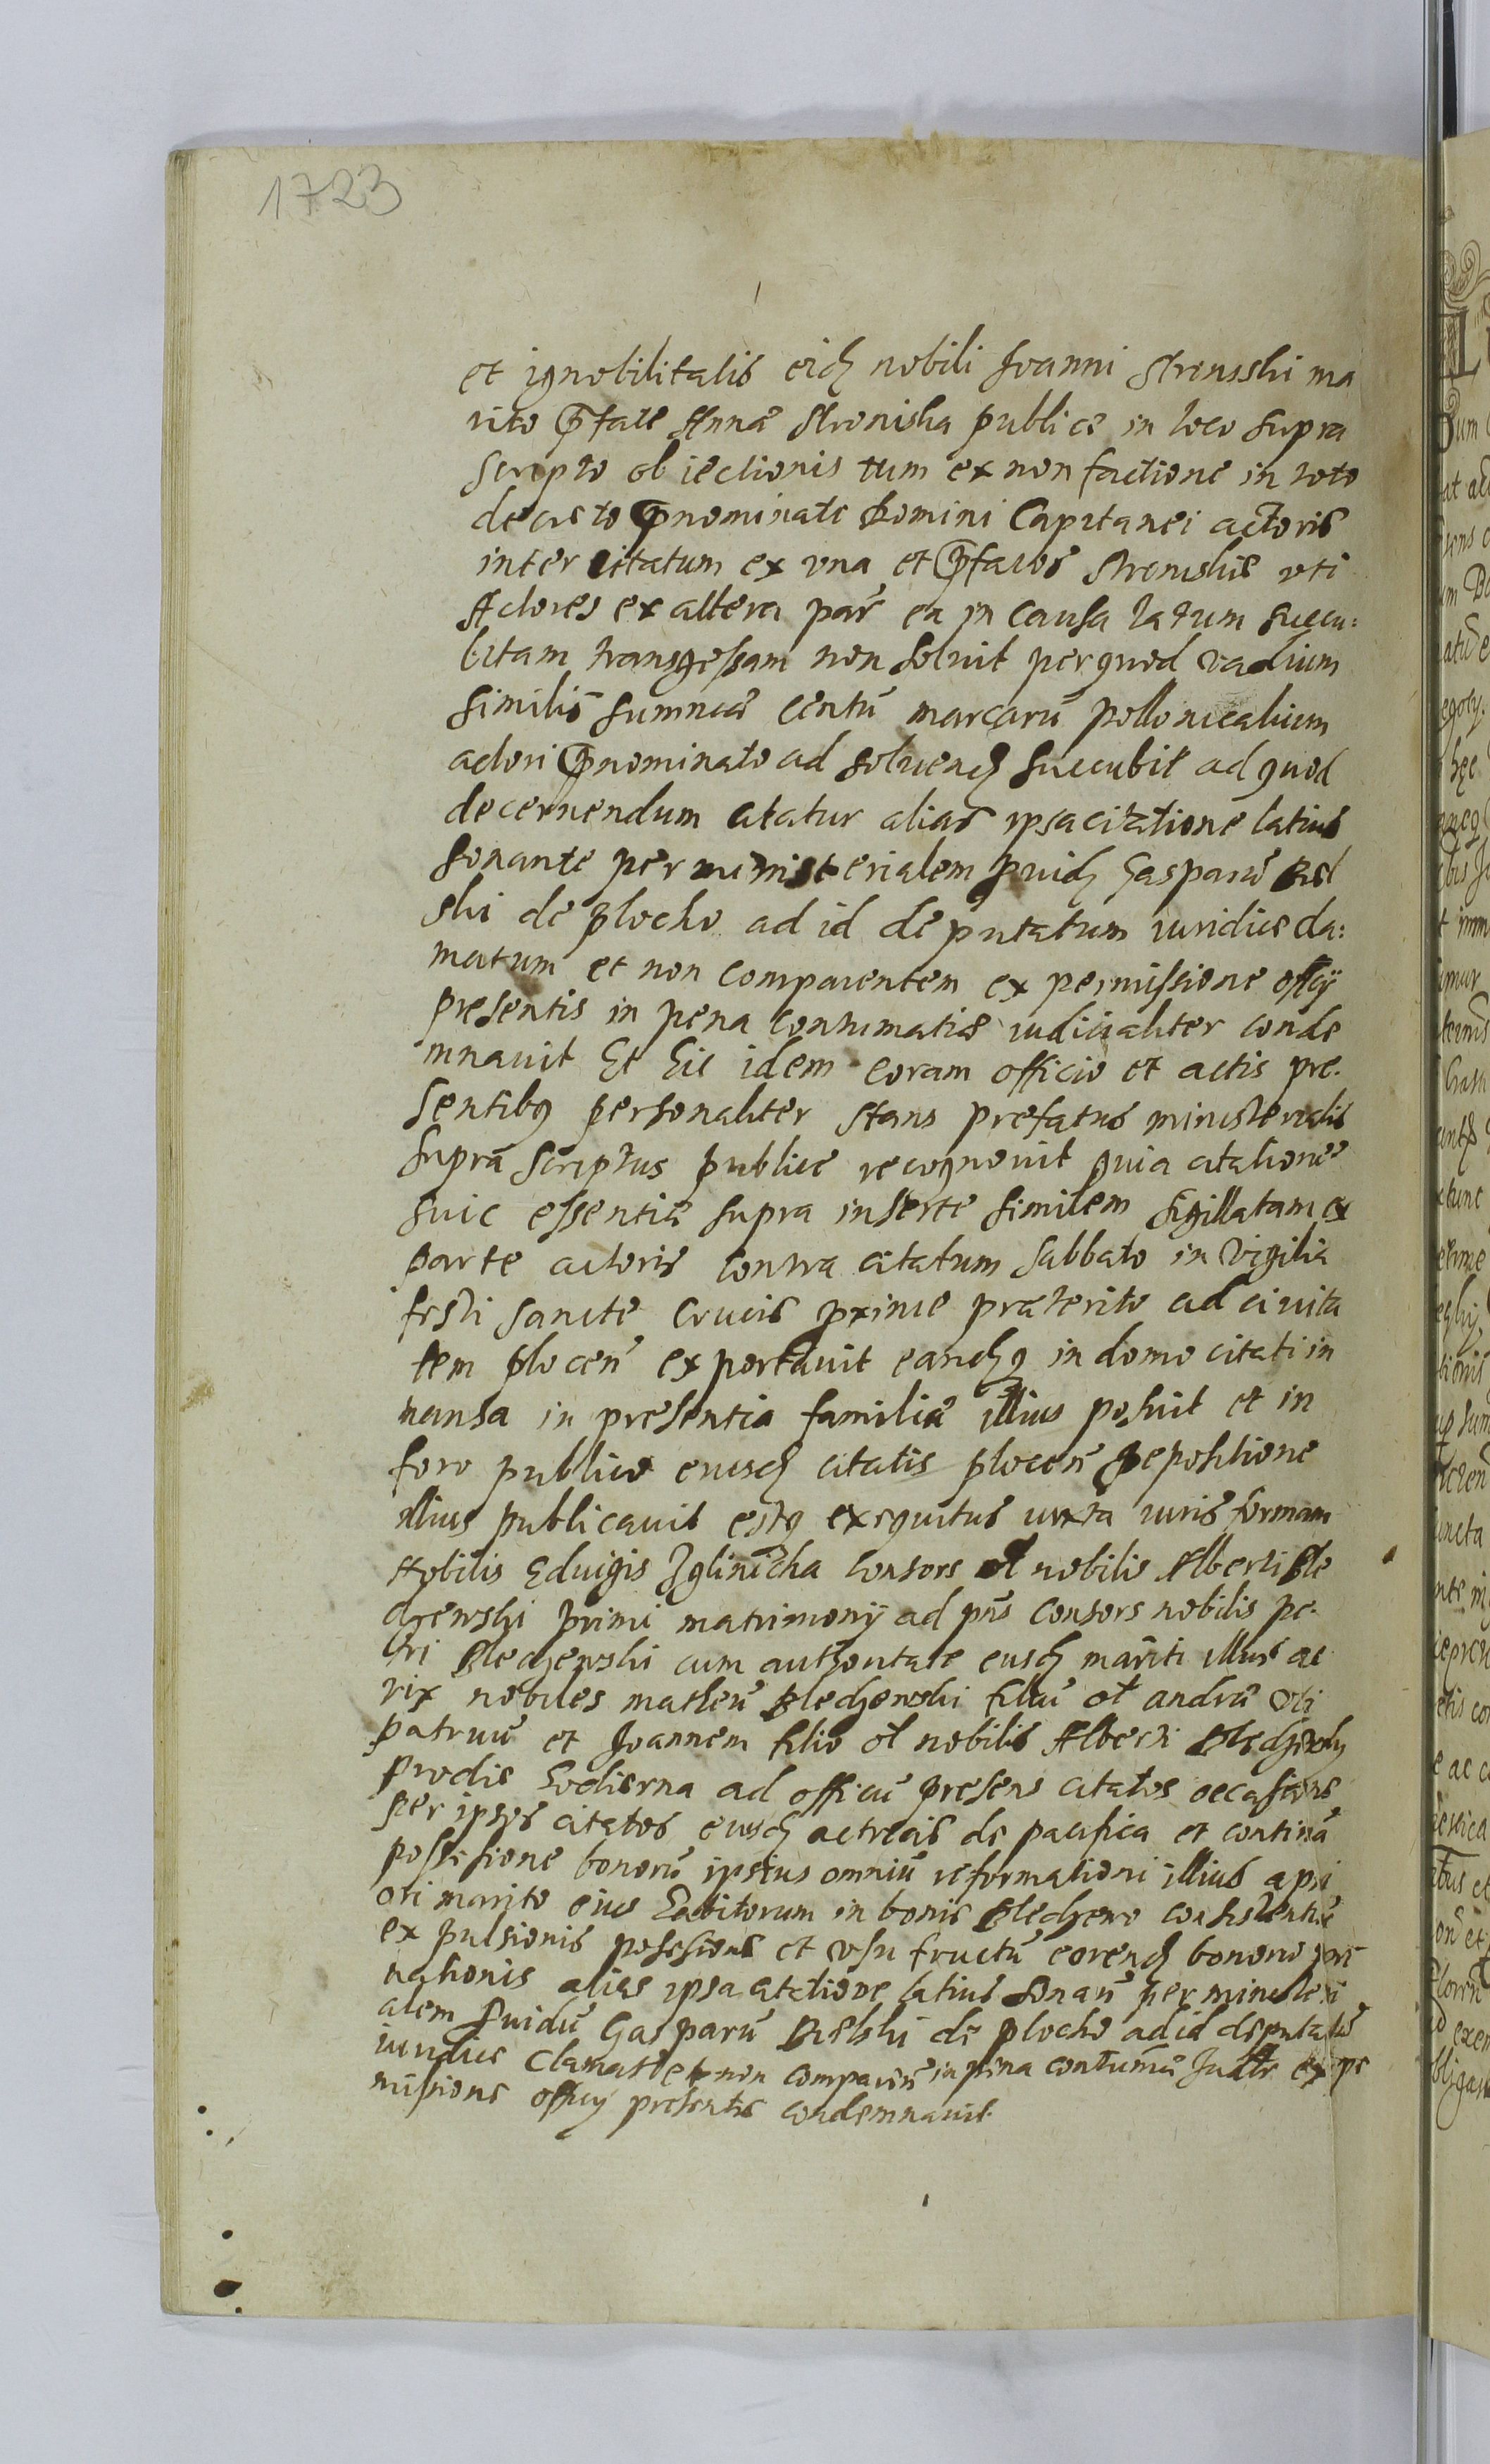 1723
et ignobilitatis eid nobili Joanni Stronsski ma
rito pfate Annæ Stroniska publice in loco supra
scripto ob iectionis tum ex non factione in toto
decreto pnominati Domini Capitanei actoris
inter citatum ex vna et pfatos Stronskie vti
Actores ex altera par ea in causa latum succu:
bitam transgessam non soluit per quod vadium
similis summæ centū marcarū pollonicalium
actori pnominato ad soluend succubit ad quod
decernendum citatur alias ipsa citatione latius
sonante per ministerialem puid Gasparū Biel
ski de plocko ad id deputatum iuridice cla:
matum et non comparentem ex permissione officij
presentis in pena contumatiæ iudicialiter conde
mnauit Et hic idem coram officio et actis pre.
sentibq personaliter stans prefatus ministerialis
supra scriptus publice recognouit quia citationē
suic essentiæ supra inserte similem sigillatam ex
parte actoris contra citatum sabbato in vigilia
festi sancte Crucis pxime præterito ad ciuita
tem plocen̄ exportauit eandq in domo citati in
mansa in presentia familiæ illius posuit et in
foro publico eiusd citatis plocen̄ depositione
illius publicauit estq exequutus iuxta iuris formam
Nobilis Eduigis Zglinicka consors ol nobilis Alberti Ble
dzewski primi matrimonij ad pn̄s consors nobilis pe.
tri Bledzewski cum authoritate eiusd mariti illius ac
rix nobiles matheū Bledzewski filiū ol andreæ vti
patruū et Joannem filio ol nobilis Alberti Bledzewsky
prodie hodierna ad officiū presens citatos occasione
per ipsos citatos eiusd actricis de pacifica et continua
possesione bonorū ipsius omniū reformationi illius a pri
ori marito eius habitorum in bonis Bledzewo consistentiū
ex pulsionis possesione et vsu fructū eorend bonorū
nationis alias ipsa citatione latius sonan̄ per ministeri
alem puidū Gasparū Bielski de plocko ad id deputatū
iuridice clamat et non comparen̄ in pena contumā Judtr ex pe
misione officij presentis condemnauit.